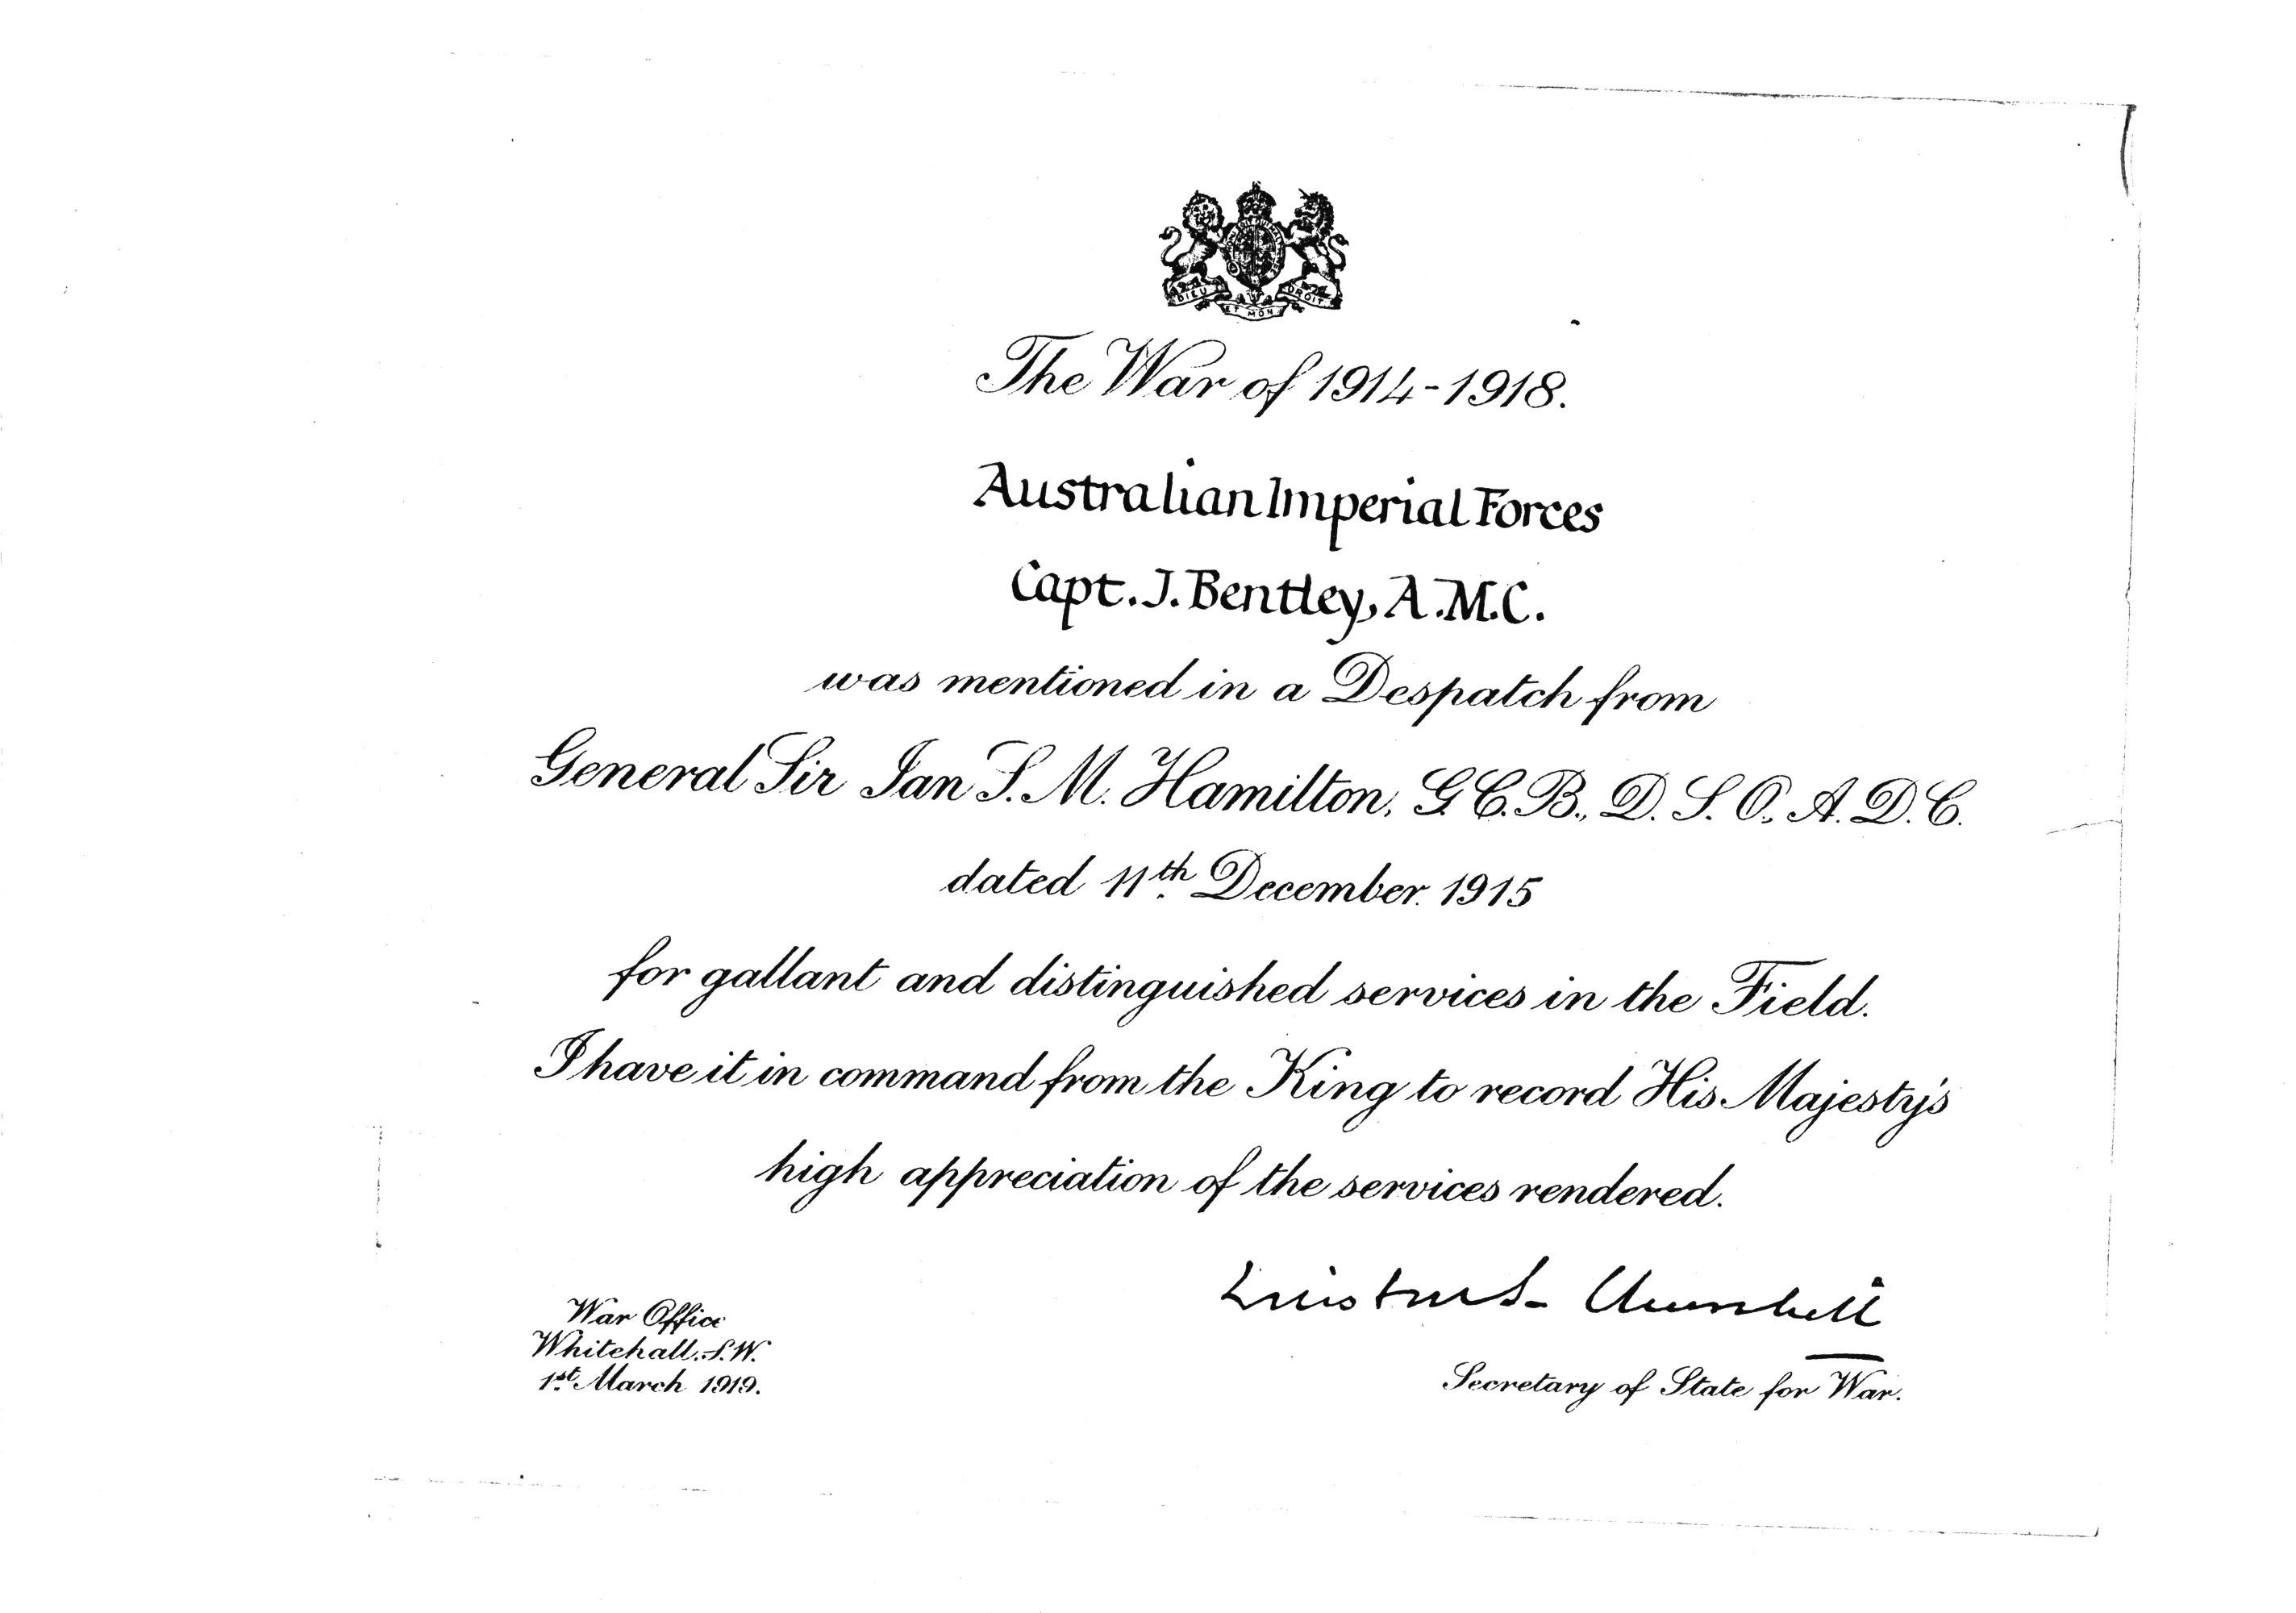 DIEU ET MON DROIT
The War of 1914-1918.
Australian Imperial Forces
Capt. J. Bentley, A.M.C.
was mentioned in a Despatch from
General Sir Ian S. M. Hamilton, G.C.B., D.S.O., A.D.C.
dated 11th December 1915
for gallant and distinguished services in the Field.
I have it in command from the King to record His Majesty's
high appreciation of the services rendered.
Winston S. Churchill
Secretary of State for War.
War Office
Whitehall. S.W.
1st March 1919.